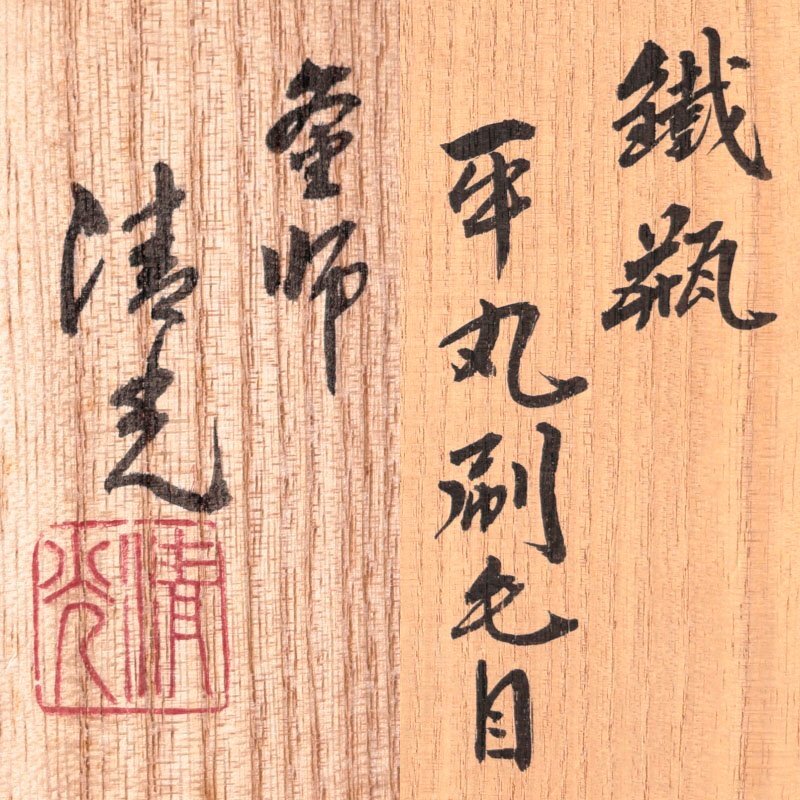 鐵瓶
平丸刷毛目
釜師
清光
清光